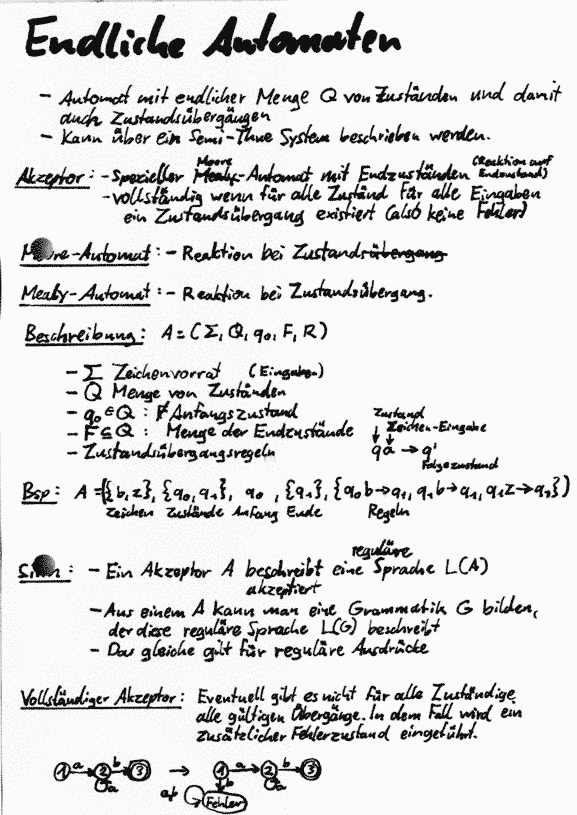 Endliche Automaten
- Automat mit endlicher Menge Q von Zuständen und damit
auch Zustandsübergängen
- Kann über ein Semi-Thue System beschrieben werden.
Akzeptor: - Spezieller Moore Mealy-Automat mit Endzuständen (Reaktion auf Endzustand)
- vollständig wenn für alle Zuständ für alle Eingaben
ein Zustandsübergang existiert (also keine Fehler)
Moore-Automat: - Reaktion bei Zustandsübergang
Mealy-Automat: - Reaktion bei Zustandsübergang.
Beschreibung: A = (Σ, Q, q₀, F, R)
- Σ Zeichenvorrat (Eingaben)
- Q Menge von Zuständen
- q₀ ∈ Q : Anfangszustand
Zustand
- F ⊆ Q : Menge der Endzustände ↓ Zeichen-Eingabe
- Zustandsübergangsregeln qa → q'
Folgezustand
Bsp: A = ({b, z}, {q₀, q₁}, q₀, {q₁}, {q₀b → q₁, q₁b → q₁, q₁z → q₁})
Zeichen Zustände Anfang Ende Regeln
reguläre
Sinn: - Ein Akzeptor A beschreibt eine Sprache L(A)
akzeptiert
- Aus einem A kann man eine Grammatik G bilden,
der diese reguläre Sprache L(G) beschreibt
- Das gleiche gilt für reguläre Ausdrücke
Vollständiger Akzeptor: Eventuell gibt es nicht für alle Zuständige
alle gültigen Übergänge. In dem Fall wird ein
zusätzlicher Fehlerzustand eingeführt.
1 a 2 b 3 → 1 a 2 b 3
a b a
a,b Fehler